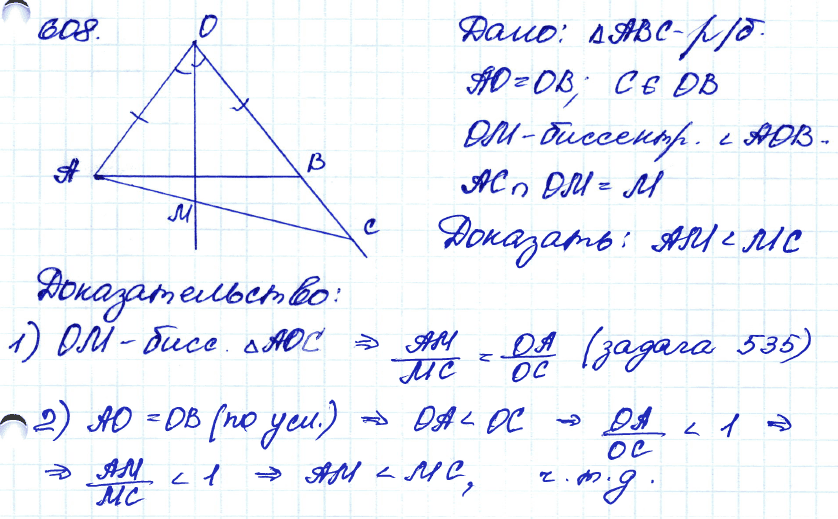 608.
O
A
B
M
C
Дано: △ABC - р/б.
AO = OB; C ∈ OB
OM - биссектр. ∠ AOB.
AC ∩ OM = M
Доказать: AM < MC
Доказательство:
1) OM - бисс. △AOC ⇒ AM/MC = OA/OC (задача 535)
2) AO = OB (по усл.) ⇒ OA < OC ⇒ OA/OC < 1 ⇒
⇒ AM/MC < 1 ⇒ AM < MC, ч.т.д.